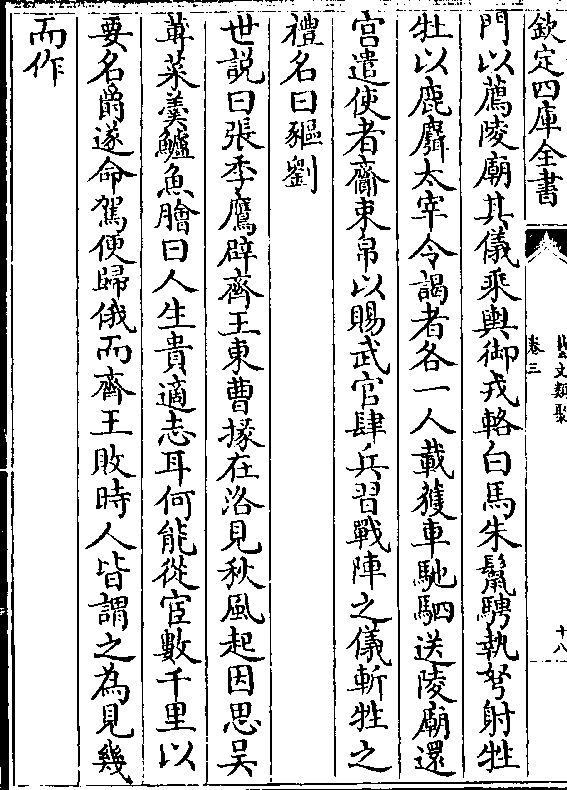 欽定四庫全書
藝文類聚
卷三
十八
門以薦陵廟其儀乘輿御戎輅白馬朱鬛騁執弩射牲
牡以鹿麛太宰令謁者各一人載獲車馳駟送陵廟還
宮遣使者齎束帛以賜武官肆兵習戰陣之儀斬牲之
禮名曰貙劉
世說曰張季鷹辟齊王東曹掾在洛見秋風起因思吳
菰菜羹鱸魚膾曰人生貴適志耳何能從宦數千里以
要名爵遂命駕便歸俄而齊王敗時人皆謂之為見幾
而作